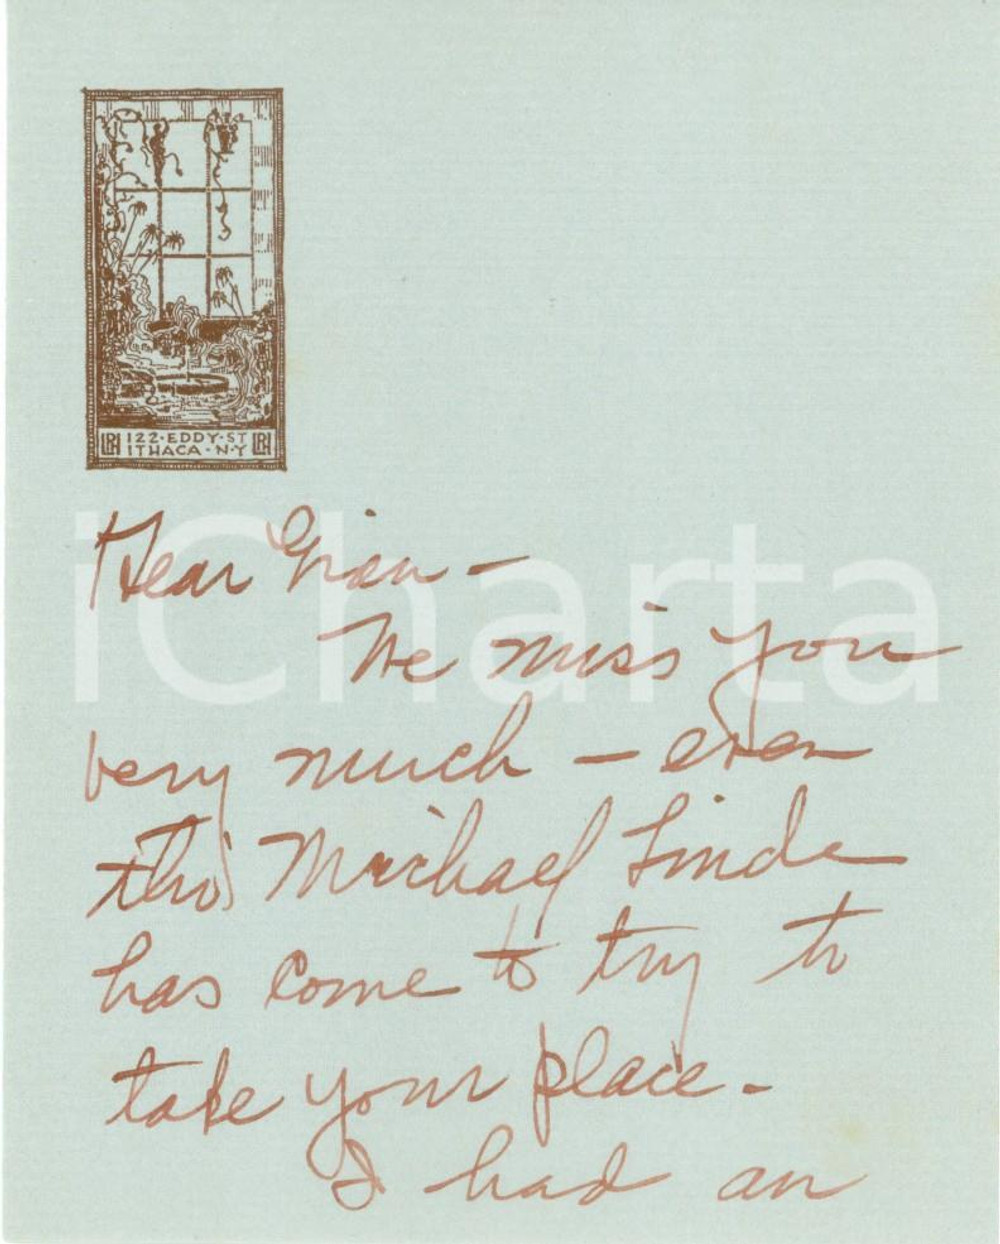 122·EDDY·ST
ITHACA·N·Y
iCharta
Dear Gian –
We miss you
very much – even
tho' Michael Linda
has come to try to
take your place –
I had an